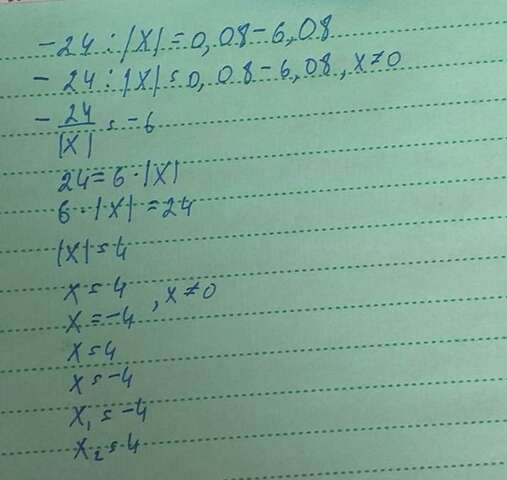 -24 : |X| = 0,08 - 6,08
- 24 : |X| = 0,08 - 6,08, x ≠ 0
- 24/|X| = -6
24 = 6 · |X|
6 · |X| = 24
|X| = 4
x = 4
x = -4 , x ≠ 0
x = 4
x = -4
x₁ = -4
x₂ = 4